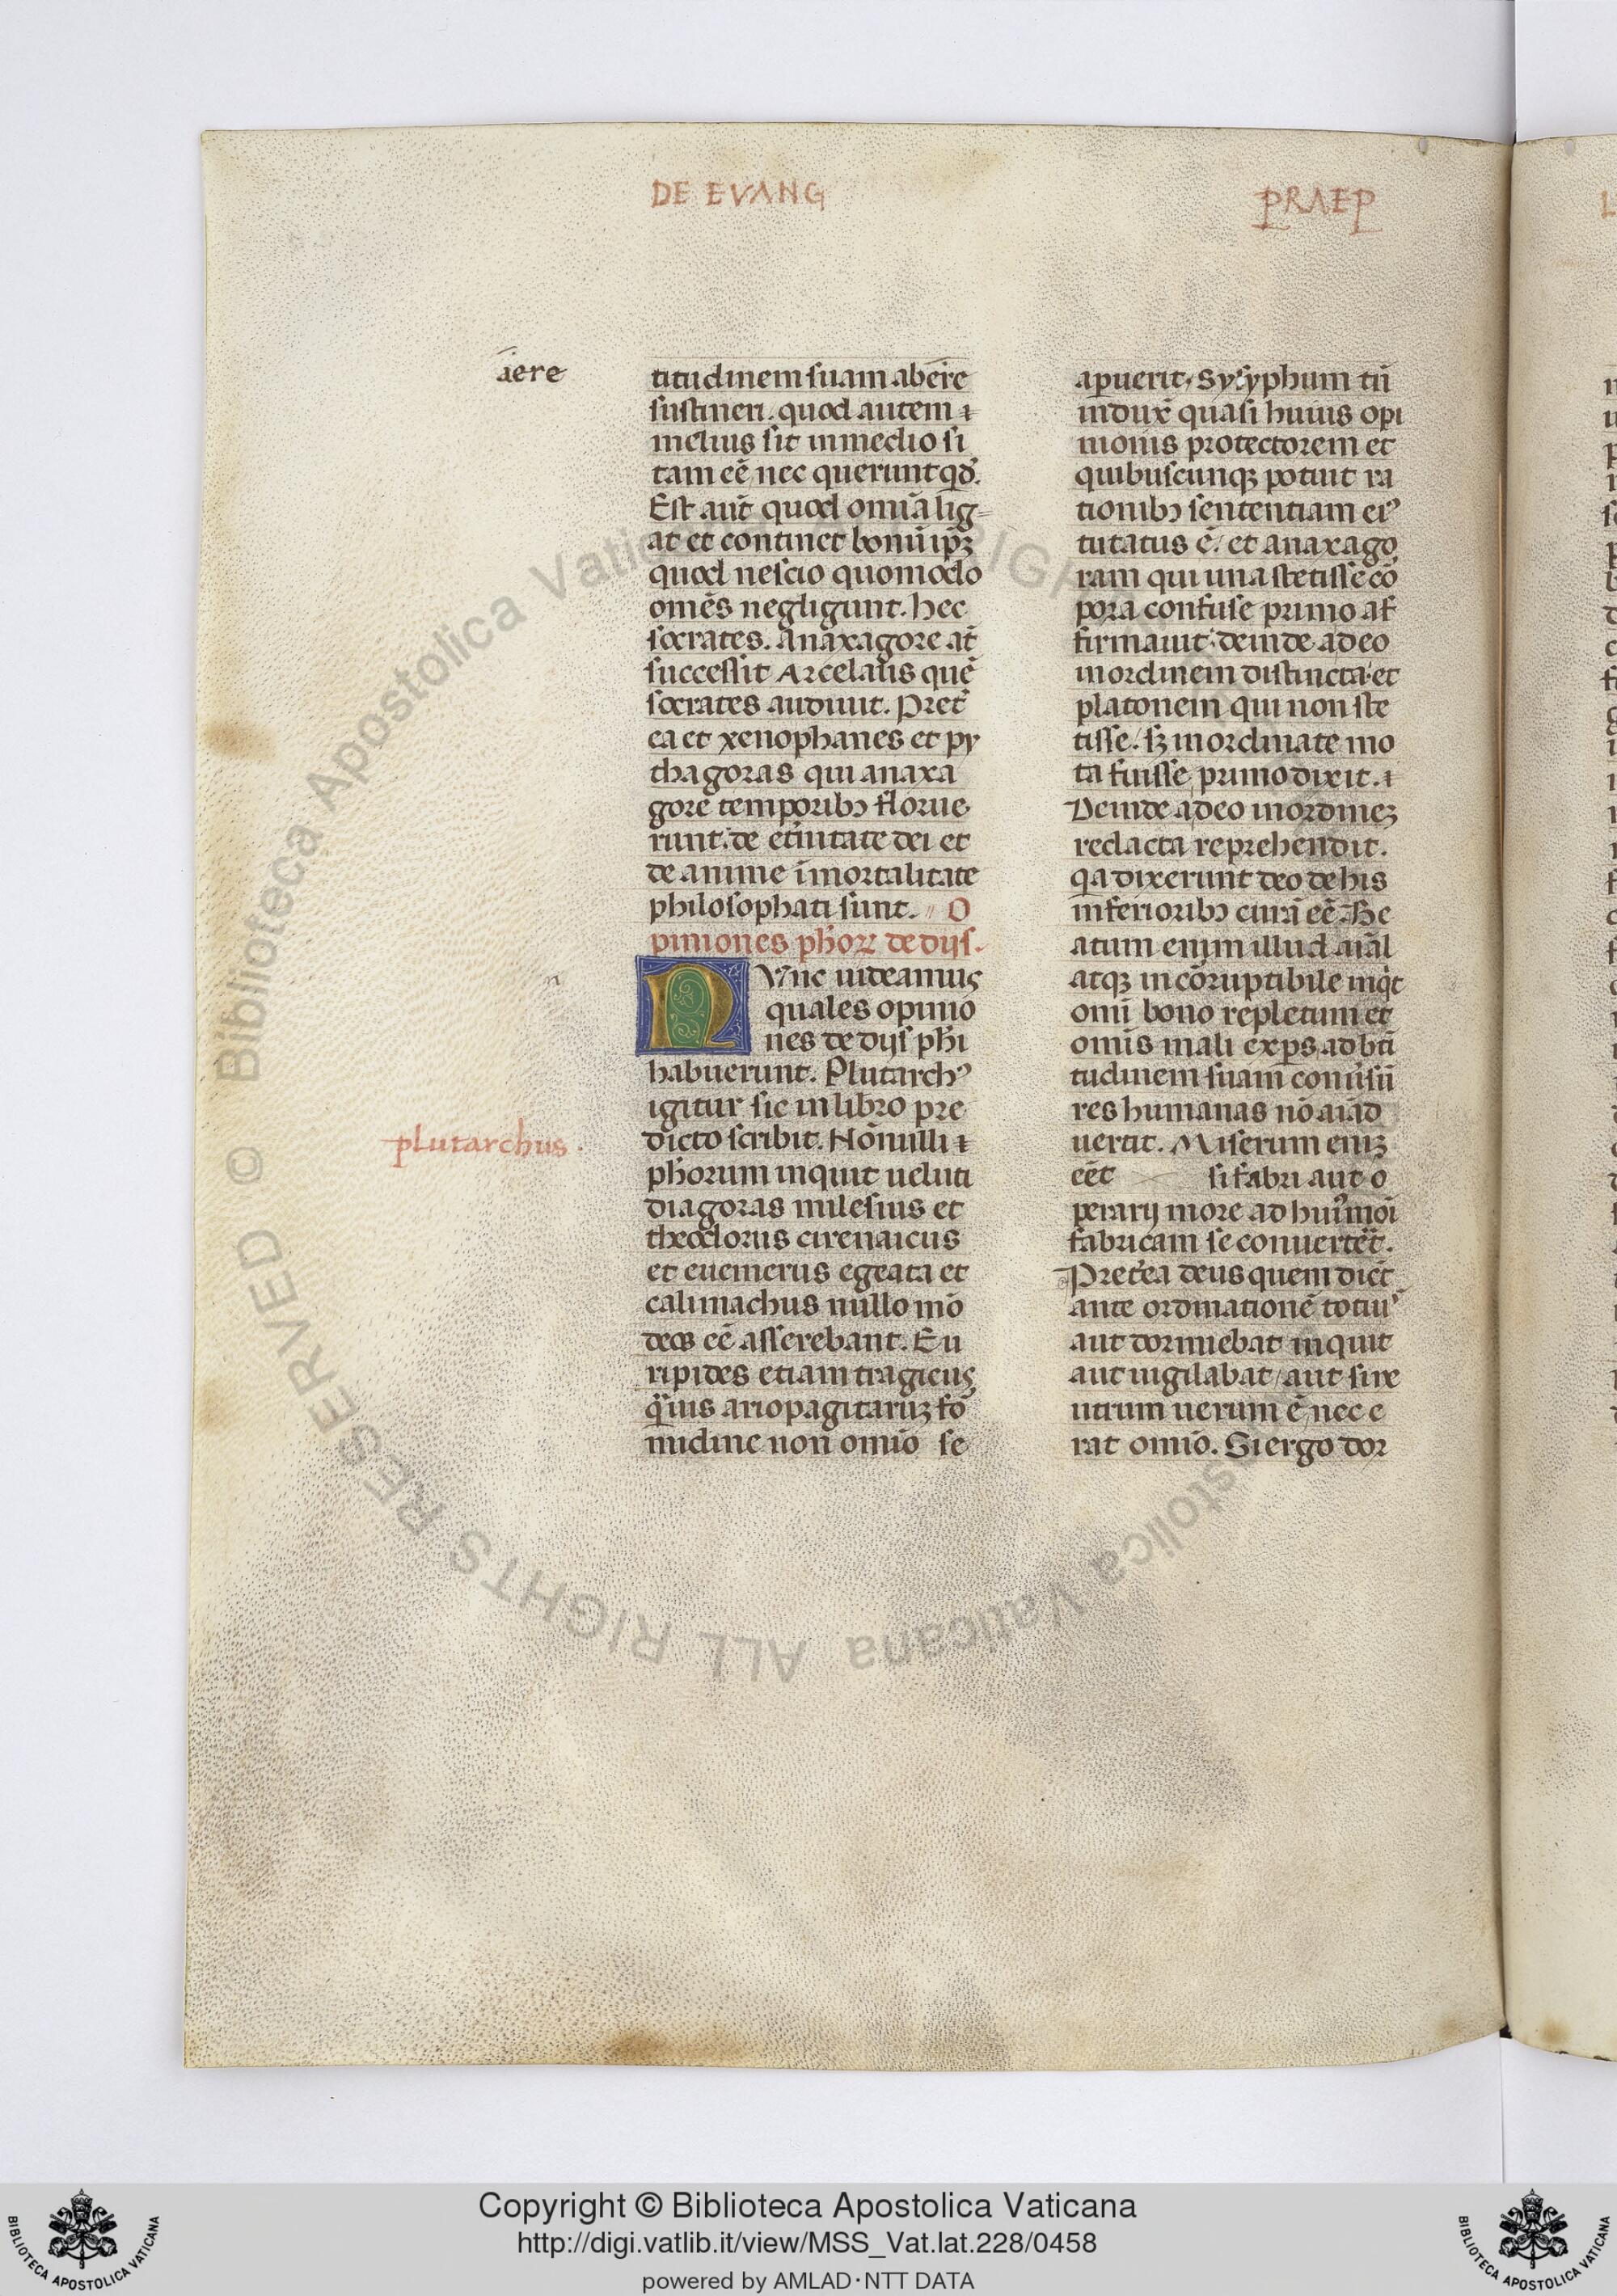 DE EVANG
PRAEP
āere
titudinem suam ab ēre
sustineri. quod autem ɿ
melius sit in medio si
tam eē nec querunt qđ.
Est aut̄ quod omīa lig=
at et continet bonū ip̄ꝫ
quod nescio quomodo
omēs negligunt. hec
socrates. Anaxagore at̄
successit Arcelaus quē
socrates audiuit. Pret̄
ea et xenophanes et py
thagoras qui anaxa
gore temporibꝫ florue
runt. de et̄nitate dei et
de anime īmortalitate
philosophati sunt. O
piniones ph̄oꝝ de dijs.
NVnc uideamus
quales opinio
nes de dijs phī
habuerunt. Plutarchꝰ
igitur sic in libro pre
dicto scribit. Nōnulli ɿ
plutarchus.
ph̄orum inquit ueluti
diagoras milesius et
theodorus cirenaicus
et euemerus egeata et
calimachus nullo mō
deos eē asserebant. Eu
ripides etiam tragicus
q̄uis ariopagitaruꝫ fo
midine non omīo se
apuerit, Sysyphum tn̄
indux̄ quasi huius opi
nionis protectorem et
quibuscunqꝫ potuit ra
tionibꝫ sententiam eiꝰ
tutatus ē. et anaxago
ram qui una stetisse cō
pora confuse primo af
firmauit. deinde a deo
in ordinem distincta. et
platonem qui non ste
tisse. sꝫ inordinate mo
ta fuisse primo dixit. ɿ
Deinde a deo in ordineꝫ
redacta reprehendit.
qa dixerunt deo de his
inferioribꝫ curā eē. Be
atum enim illud aīal
atqꝫ incōruptibile inqͥt
omī bono repletum et
omīs mali exp̄s ad btī
tudinem suam conuersū
res humanas nō aīad
uertit. Miserum enīꝫ
eēt si fabri aut o
perarij more ad huiꝰmōi
fabricam se conuerteēt.
Pret̄ea deus quem dicēt
ante ordinationē totiuꝰ
aut dormiebat inquit
aut uigilabat, aut si ne
utrum uerum ē nec e
rat omīo. Si ergo dor
Copyright © Biblioteca Apostolica Vaticana
http://digi.vatlib.it/view/MSS_Vat.lat.228/0458
powered by AMLAD·NTT DATA
BIBLIOTECA APOSTOLICA VATICANA
BIBLIOTECA APOSTOLICA VATICANA